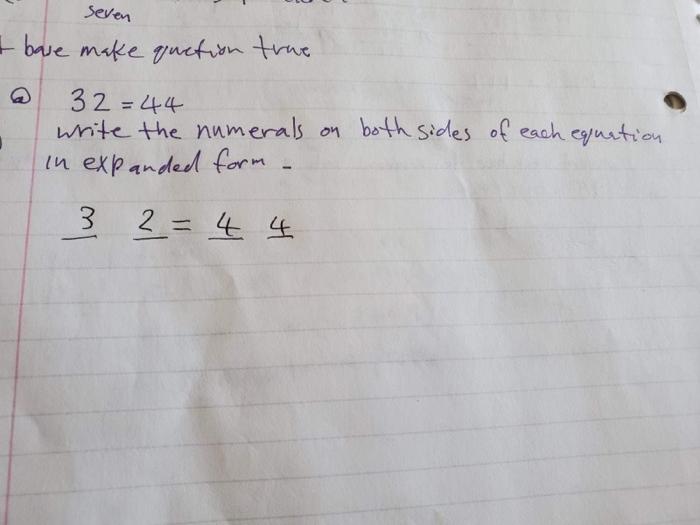 seven
base make question true
a 32 = 44
write the numerals on both sides of each equation
in expanded form -
3 2 = 4 4